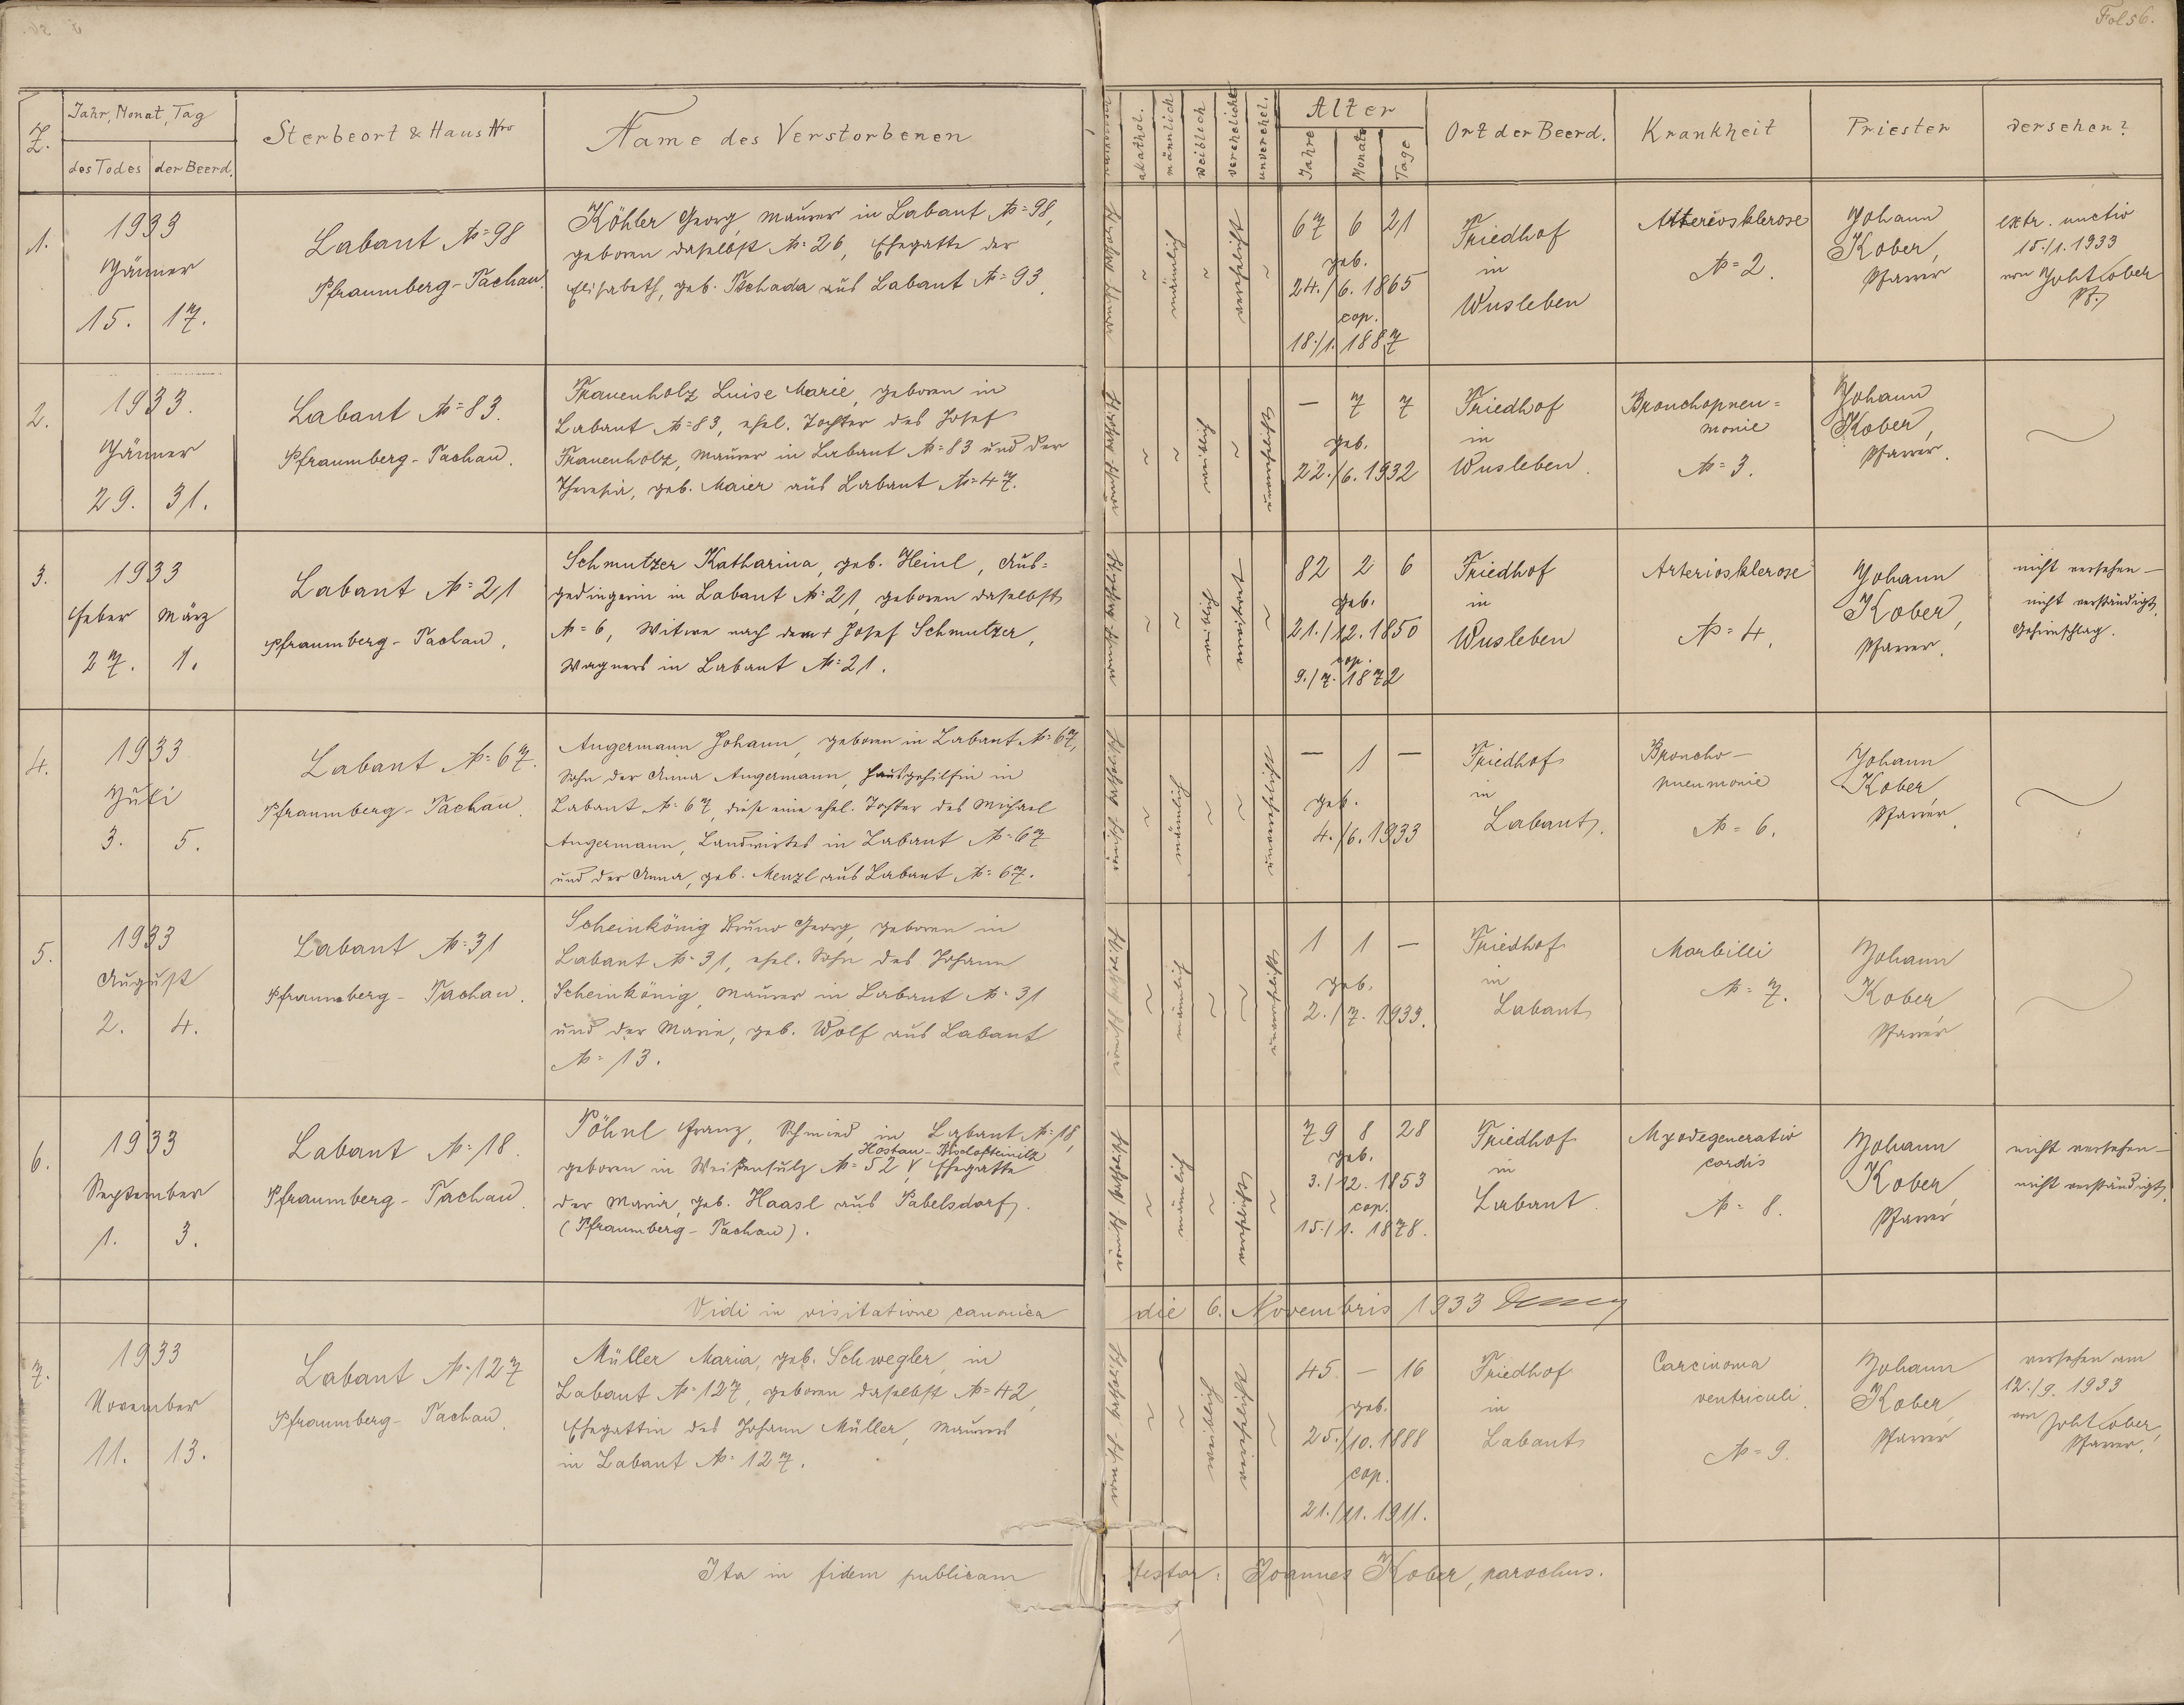 Fol 56.
Z.
Jahr, Monat, Tag
des Todes der Beerd.
Sterbeort & Haus Nro
Name des Verstorbenen
akathol.
männlich
weiblich
verehelicht
unverehel.
Alter
Jahre
Monate
Tage
Ort der Beerd.
Krankheit
Priester
versehen?
1.
1933
Jänner
15. 17.
Labant № 98
Pfraumberg-Tachau.
Köhler Georg, Maurer in Labant № 98,
geboren daselbst № 26, Ehegatte der
Elisabeth, geb. Tschada aus Labant № 93.
~ männlich ~ verehelicht ~
67 6 21
geb.
24./6. 1865
cop.
18./1. 1887
Friedhof
in
Wusleben
Arteriosklerose
№ 2.
Johann
Kober,
Pfarrer
extr. unctio
15./1. 1933
von Joh Kober
Pf.
2.
1933.
Jänner
29. 31.
Labant № 83.
Pfraumberg-Tachau.
Frauenholz Luise Marie, geboren in
Labant № 83, ehel. Tochter des Josef
Frauenholz, Maurer in Labant № 83 und der
Theresia, geb. Maier aus Labant № 47.
~ ~ weiblich ~ unverehelicht
— 7 7
geb.
22./6. 1932
Friedhof
in
Wusleben.
Bronchopneu=
monie
№ 3.
Johann
Kober,
Pfarrer.
3.
1933
Feber März
27. 1.
Labant № 21
Pfraumberg-Tachau.
Schmutzer Katharina, geb. Heinl, Aus=
gedingerin in Labant № 21, geboren daselbst
№ 6, Witwe nach dem + Josef Schmutzer,
Wagners in Labant № 21.
~ ~ weiblich verwitwet ~
82 2 6
geb.
21./12. 1850
cop.
9./7. 1872
Friedhof
in
Wusleben
Arteriosklerose
№ 4.
Johann
Kober,
Pfarrer.
nicht versehen —
nicht verständigt.
Gehirnschlag.
4.
1933
Juli
3. 5.
Labant № 67.
Pfraumberg-Tachau.
Angermann Johann, geboren in Labant № 67,
Sohn der Anna Angermann, Hausgehilfin in
Labant № 67, diese eine ehel. Tochter des Michael
Angermann, Landwirtes in Labant № 67
und der Anna, geb. Menzl aus Labant № 67.
~ männlich ~ ~ unverehelicht
— 1 —
geb.
4./6. 1933
Friedhof
in
Labant.
Broncho—
pneumonie
№ 6.
Johann
Kober,
Pfarrer.
5.
1933
August
2. 4.
Labant № 31
Pfraumberg - Tachau.
Scheinkönig Bruno Georg, geboren in
Labant № 31, ehel. Sohn des Johann
Scheinkönig, Maurer in Labant № 31
und der Marie, geb. Wolf aus Labant
№ 13.
~ männlich ~ ~ unverehelicht
1 1 —
geb.
2./7. 1933.
Friedhof
in
Labant
Morbilli
№ 7.
Johann
Kober
Pfarrer
6.
1933
September
1. 3.
Labant № 18.
Pfraumberg - Tachau.
Pöhnl Franz, Schmied in Labant № 18,
Hostau - Bischofteinitz
geboren in Weißensulz № 52, Ehegatte
der Maria, geb. Haasl aus Pabelsdorf.
(Pfraumberg - Tachau).
~ männlich ~ verehelicht ~
79 8 28
geb.
3./12. 1853
cop.
15./1. 1878.
Friedhof
in
Labant.
Myodegeneratio
cordis
№ 8.
Johann
Kober,
Pfarrer
nicht versehen —
nicht verständigt.
Vidi in visitatione canonica die 6. Novembris 1933
7.
1933
November
11. 13.
Labant № 127
Pfraumberg - Tachau.
Müller Maria, geb. Schwegler, in
Labant № 127, geboren daselbst № 42,
Ehegattin des Johann Müller, Maurers
in Labant № 127.
~ ~ weiblich verehelicht ~
45. — 16
geb.
25./10. 1888
cop.
21./11. 1911.
Friedhof
in
Labant
Carcinoma
ventriculi.
№ 9.
Johann
Kober,
Pfarrer
versehen am
12./9. 1933
von Joh Kober,
Pfarrer.
Ita in fidem publicam testor: Joannes Kober, parochus.